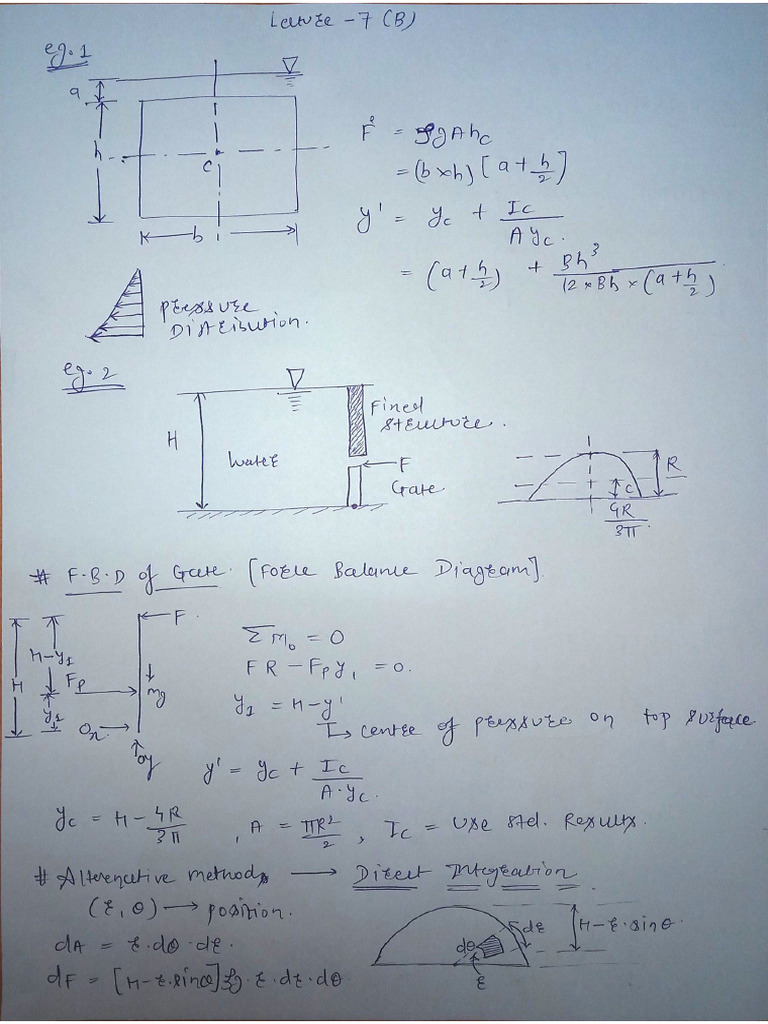 Lecture - 7 (B)
eg. 1
a
h
c
b
F = ρgAhc
= (b×h) [a + h/2]
y' = yc + Ic/(A yc).
= (a + h/2) + Bh³/(12 × Bh × (a + h/2))
Pressure
Distribution.
eg. 2
H
Water
Fixed
structure.
F
Gate
R
c
4R/3π.
# F.B.D of Gate. [Force Balance Diagram].
F.
H
H-y1
Fp
y1
mg
Ox
Oy
ΣMo = 0
FR - Fp y1 = 0.
y1 = H - y'
↳ centre of pressure on top surface
y' = yc + Ic/(A·yc).
yc = H - 4R/3π, A = πR²/2, Ic = Use Std. Results.
# Alternative methods ⟶ Direct Integration.
(r, θ) ⟶ position.
dA = r·dθ·dr.
dF = [H - r·sinθ]ρg·r·dr·dθ
dr
dθ
r
H - r·sinθ.